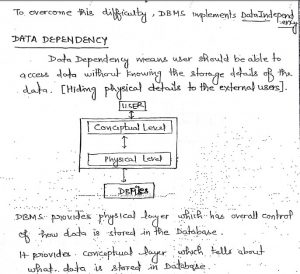 To overcome this difficulty, DBMS implements DataIndepend
ency
DATA DEPENDENCY
Data Dependency means user should be able to
access data without knowing the storage details of the
data. [Hiding physical details to the external users].
USER
Conceptual Level
Physical Level
DBFiles
DBMS provides physical layer which has overall control
of how data is stored in the Database.
It provides conceptual layer which tells about
what data is stored in Database.